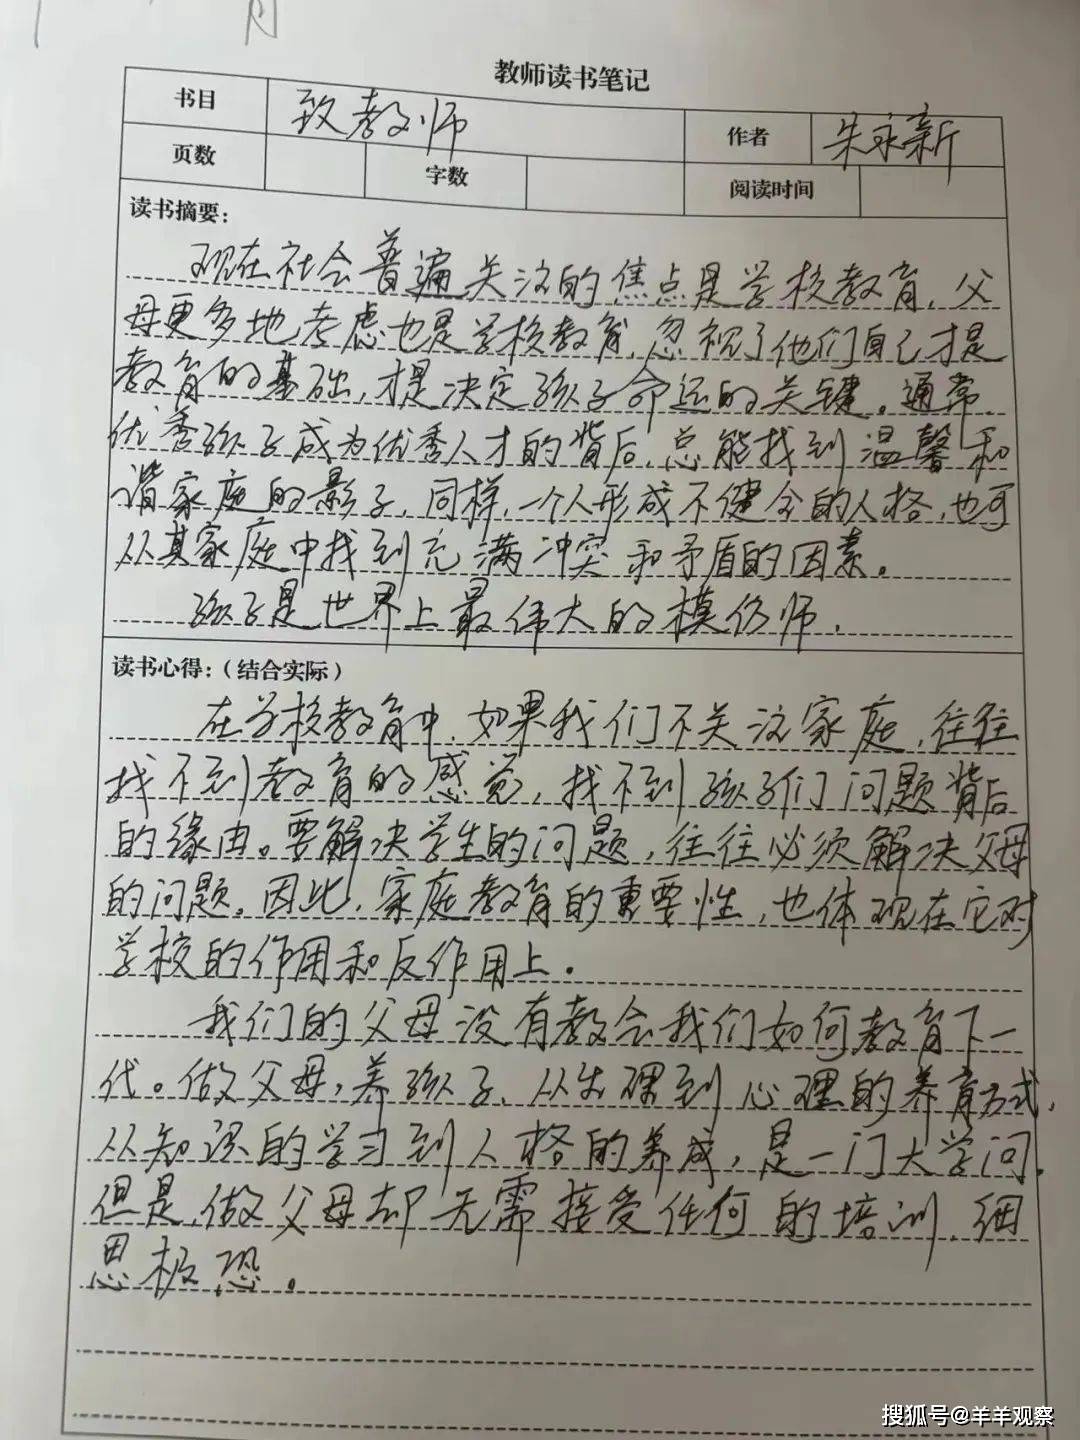 月
教师读书笔记
书目 致教师 作者 朱永新
页数 字数 阅读时间
读书摘要：
现在社会普遍关注的焦点是学校教育，父
母更多地考虑也是学校教育，忽视了他们自己才是
教育的基础，才是决定孩子命运的关键。通常，
优秀孩子成为优秀人才的背后，总能找到温馨和
谐家庭的影子，同样，一个人形成不健全的人格，也可
从其家庭中找到充满冲突和矛盾的因素。
孩子是世界上最伟大的模仿师．
读书心得：（结合实际）
在学校教育中，如果我们不关注家庭，往往
找不到教育的感觉，找不到孩子们问题背后
的缘由。要解决学生的问题，往往必须解决父母
的问题。因此，家庭教育的重要性，也体现在它对
学校的作用和反作用上．
我们的父母没有教会我们如何教育下一
代。做父母，养孩子，从生理到心理的养育方式，
从知识的学习到人格的养成，是一门大学问。
但是，做父母却无需接受任何的培训，细
思极恐。
搜狐号@羊羊观察